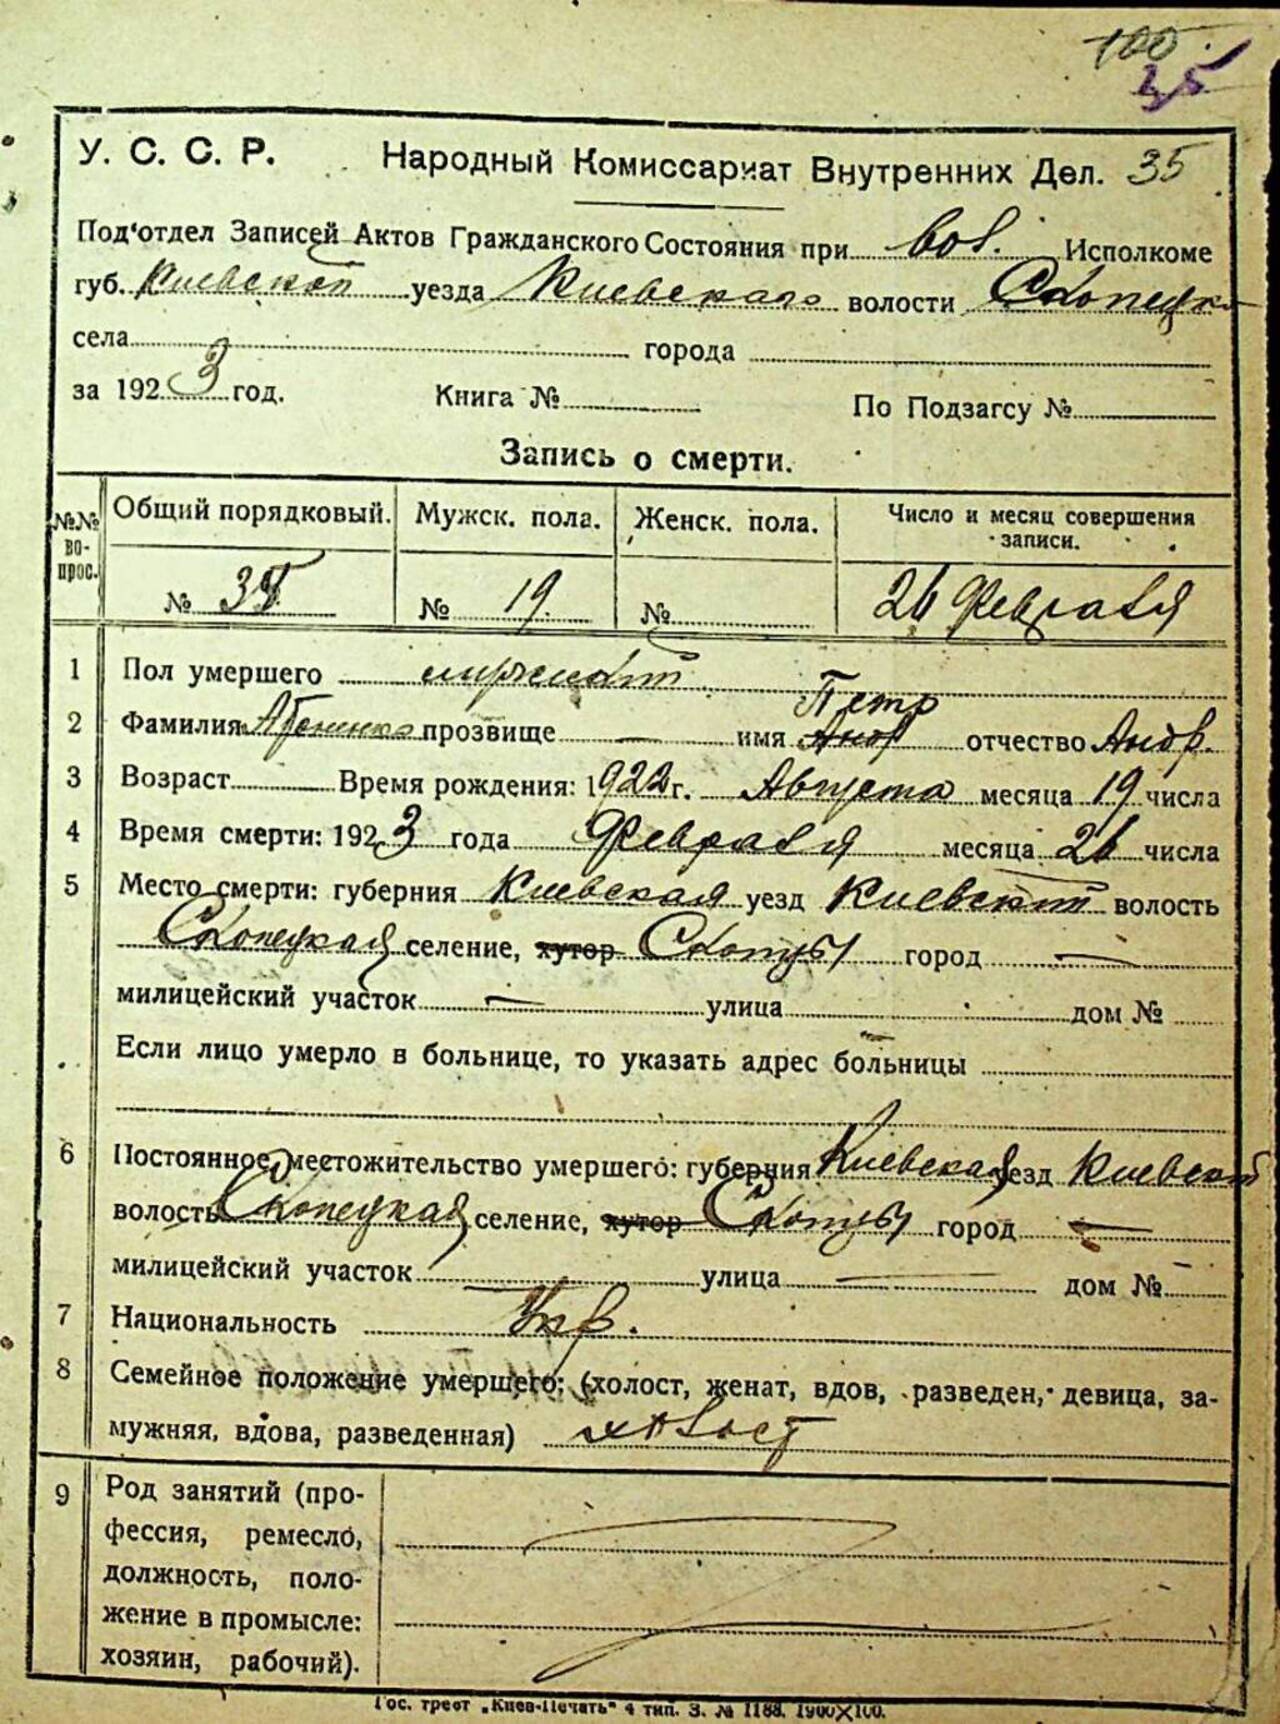 100.
35
У. С. С. Р. Народный Комиссариат Внутренних Дел. 35
Под'отдел Записей Актов Гражданского Состояния при вол. Исполкоме
губ. Киевской уезда Киевскаго волости
села города
за 1923 год. Книга № По Подзагсу №
Запись о смерти.
№№ во- прос. Общий порядковый. Мужск. пола. Женск. пола. Число и месяц совершения записи.
№ 35 № 19. № 26 Февраля
1 Пол умершего мужской
Петр
2 Фамилия прозвище — имя Андр отчество Андр.
3 Возраст Время рождения: 1922 г. Августа месяца 19 числа
4 Время смерти: 1923 года Февраля месяца 26 числа
5 Место смерти: губерния Киевская уезд Киевский волость
селение, хутор город —
милицейский участок — улица дом №
Если лицо умерло в больнице, то указать адрес больницы —
6 Постоянное местожительство умершего: губерния Киевская уезд Киевский
волость селение, хутор город —
милицейский участок — улица — дом №
7 Национальность Укр.
8 Семейное положение умершего: (холост, женат, вдов, разведен, девица, за-
мужняя, вдова, разведенная) холост
9 Род занятий (про-
фессия, ремесло,
должность, поло-
жение в промысле:
хозяин, рабочий).
Гос. трест „Киев-Печать" 4 тип. З. № 1188. 1900×100.